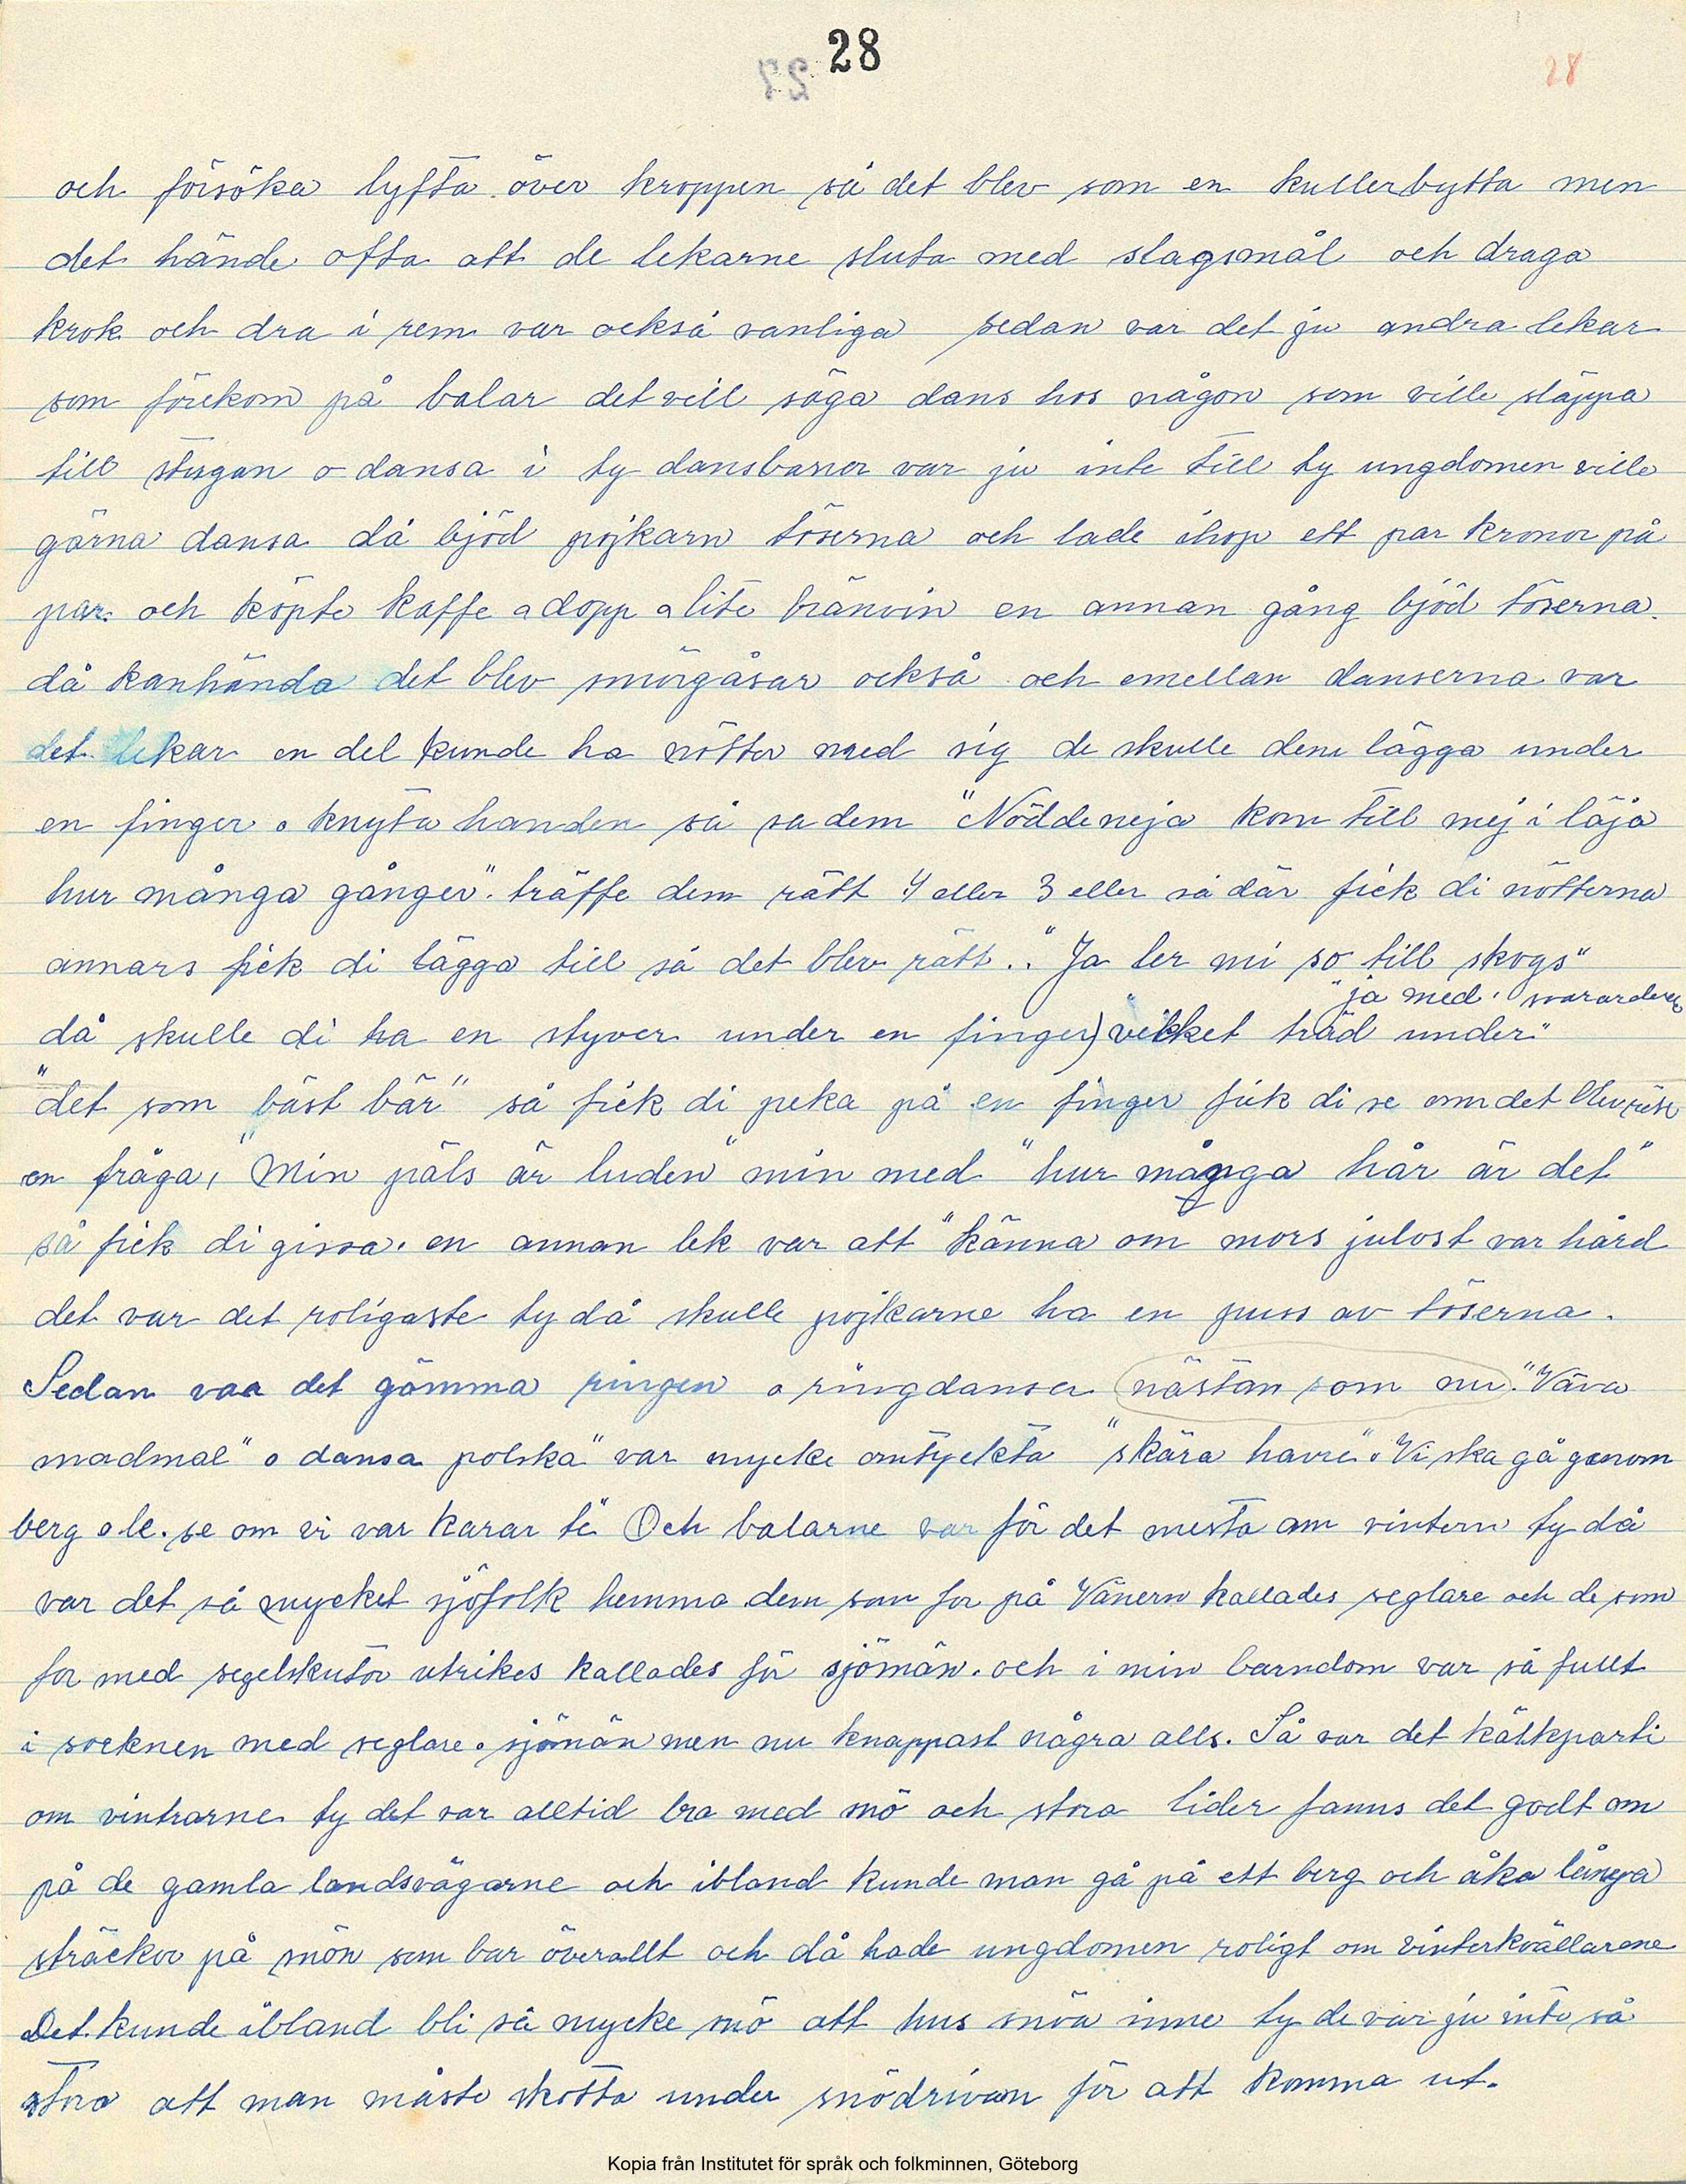 28
27
28
och försöka lyfta över kroppen så det blev som en kullerbytta men
det hände ofta att de lekarne sluta med slagsmål och draga
krok och dra i rem var också vanliga sedan var det ju andra lekar
som förekom på balar det vill säga dans hos någon som ville släppa
till stugan o dansa i ty dansbanor var ju inte till ty ungdomen ville
gärna dansa då bjöd pojkarn töserna och lade ihop ett par kronor på
par. och köpte kaffe o dopp o lite bränvin en annan gång bjöd töserna.
då kanhända det blev smörgåsar också och emellan danserna var
det lekar en del kunde ha nötter med sig de skulle dem lägga under
en finger o knyta handen så sa dem "Nöddeneja kom till mej i läja
hur många gånger". träffe dem rätt 4 eller 3 eller så där fick di nötterna
annars fick di lägga till så det blev rätt.. "Ja ler mi so till skogs"
"ja med,
då skulle di ha en styver under en finger) "vilket träd under"
"det som bäst bär" så fick di peka på en finger fick di se om det blev
en fråga, "Min päls är luden" min med "hur många hår är det"
så fick di gissa. en annan lek var att "känna om mors julost var hård
det var det roligaste ty då skulle pojkarne ha en puss av töserna.
Sedan var det gömma ringen o ringdanser nästan som nu. "Väva
madmal" o dansa polska" var mycke omtyckta "skära havre". Vi ska gå genom
berg o le. se om vi var karar te" Och balarne var för det mesta om vintern ty då
var det så mycket sjöfolk hemma dem som for på Vänern kallades seglare och de som
for med segelskutor utrikes kallades för sjömän. och i min barndom var så fullt
i socknen med seglare o sjömän men nu knappast några alls. Så var det kälkparti
om vintrarne ty det var alltid bra med snö och stora lider fanns det godt om
på de gamla landsvägarne och ibland kunde man gå på ett berg och åka långa
sträckor på snön som bar överallt och då hade ungdomen roligt om vinterkvällarne
Det kunde ibland bli så mycke snö att hus snöa inne ty de var ju inte så
stora att man måste skotta under snödrivan för att komma ut.
Kopia från Institutet för språk och folkminnen, Göteborg